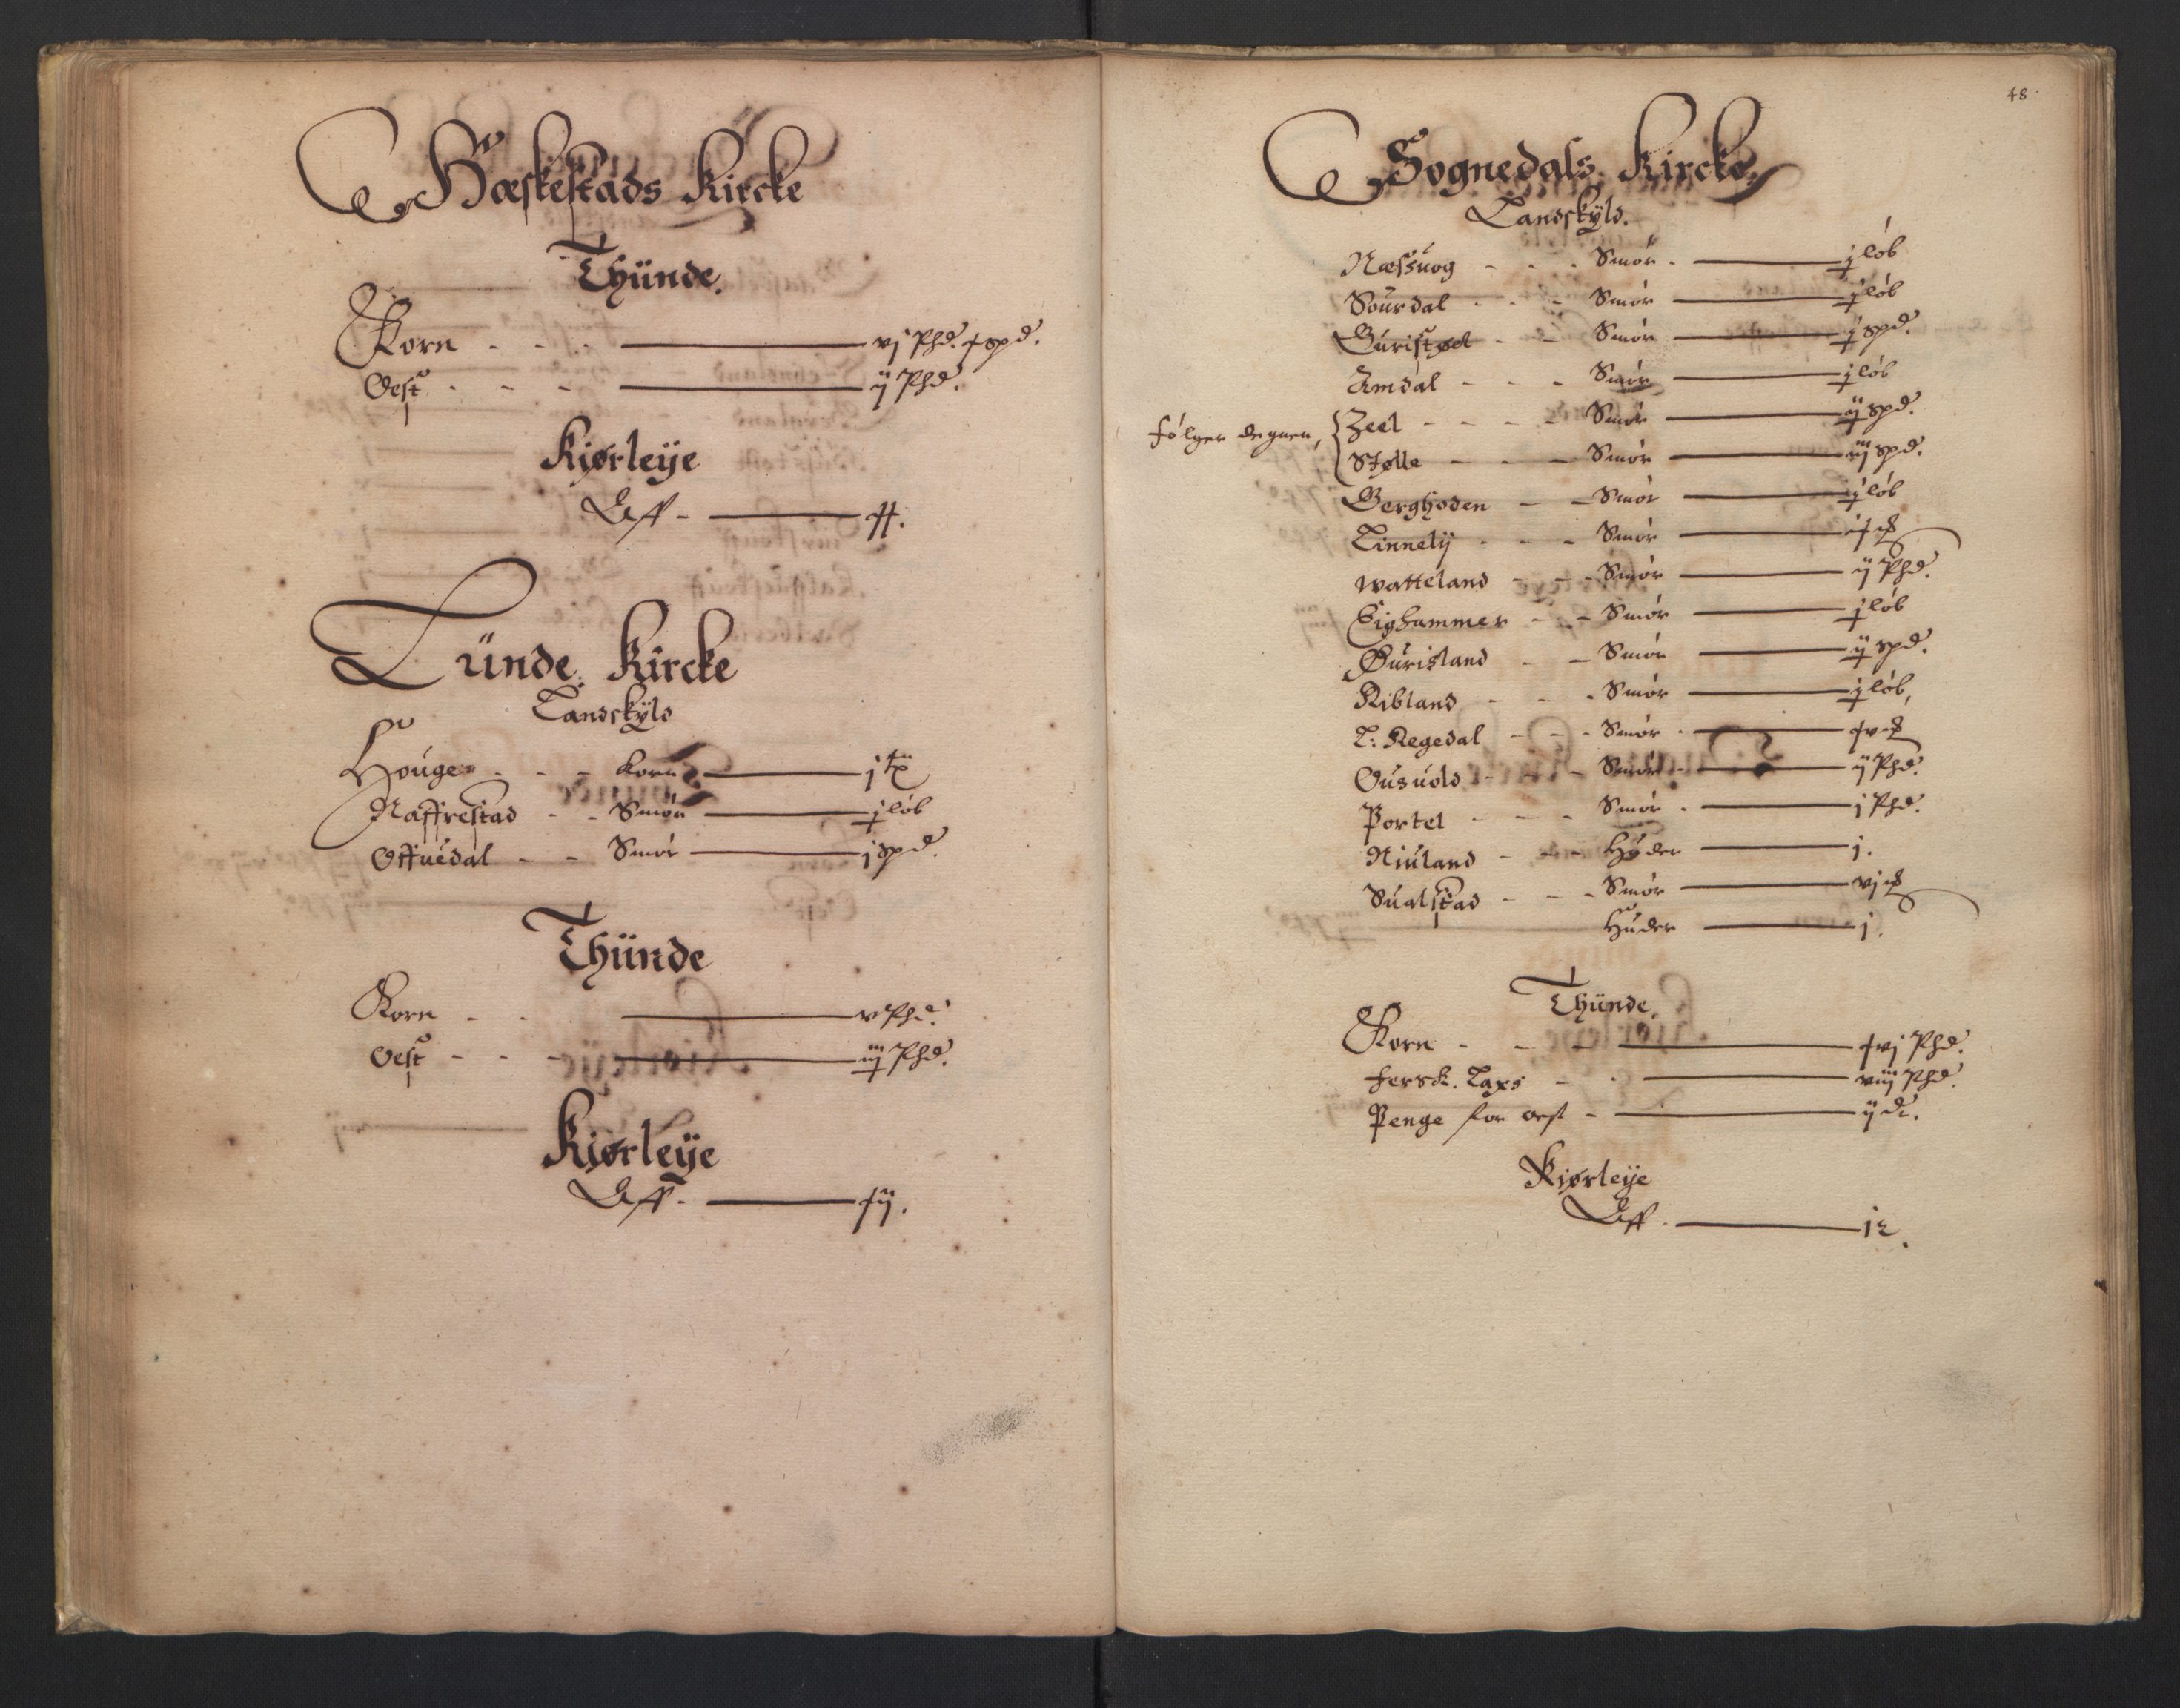 Hæskestads Kircke
Thünde.
Korn - - - vj Phd. j spd.
Oest - - - ij Phd.
Kiørleije
Eff -
Lünde Kircke
Landskÿld
Houge - - - Korn j
Naffrestad - - Smør j løb
Offuedal - - Smør j spd.
Thünde
Korn - - v Phd.
Oest - - - iij Phd.
Kiørleije
Eff -
48
Sognedals Kircke
Landskÿld.
Næssuog - - - Smør - j løb
Sourdal - - - Smør j løb
Guristød - - Smør j spd.
Amdal - - - Smør j løb
følger degnen, Zeel - - - - Smør ij spd.
Stølle - - - Smør iij spd.
Berghoden - - Smør j løb
Linnelij - - - Smør
Watteland - - - Smør ij Phd.
Eighammer - - - Smør j løb
Gurisland - - Smør ij spd.
Ribland - - - Smør j løb,
L: Regedal - - - Smør
Ousuold - - - Smør - ij Phd.
Portel - - - Smør - j Phd.
Niuland - - - Huder j.
Sualstad - - - Smør vj
Huder j.
Thünde.
Korn - - - Phd.
fersk. Laxs - - viij Phd.
Penge for oest - ij dr.
Kiørleije
Eff - 12.